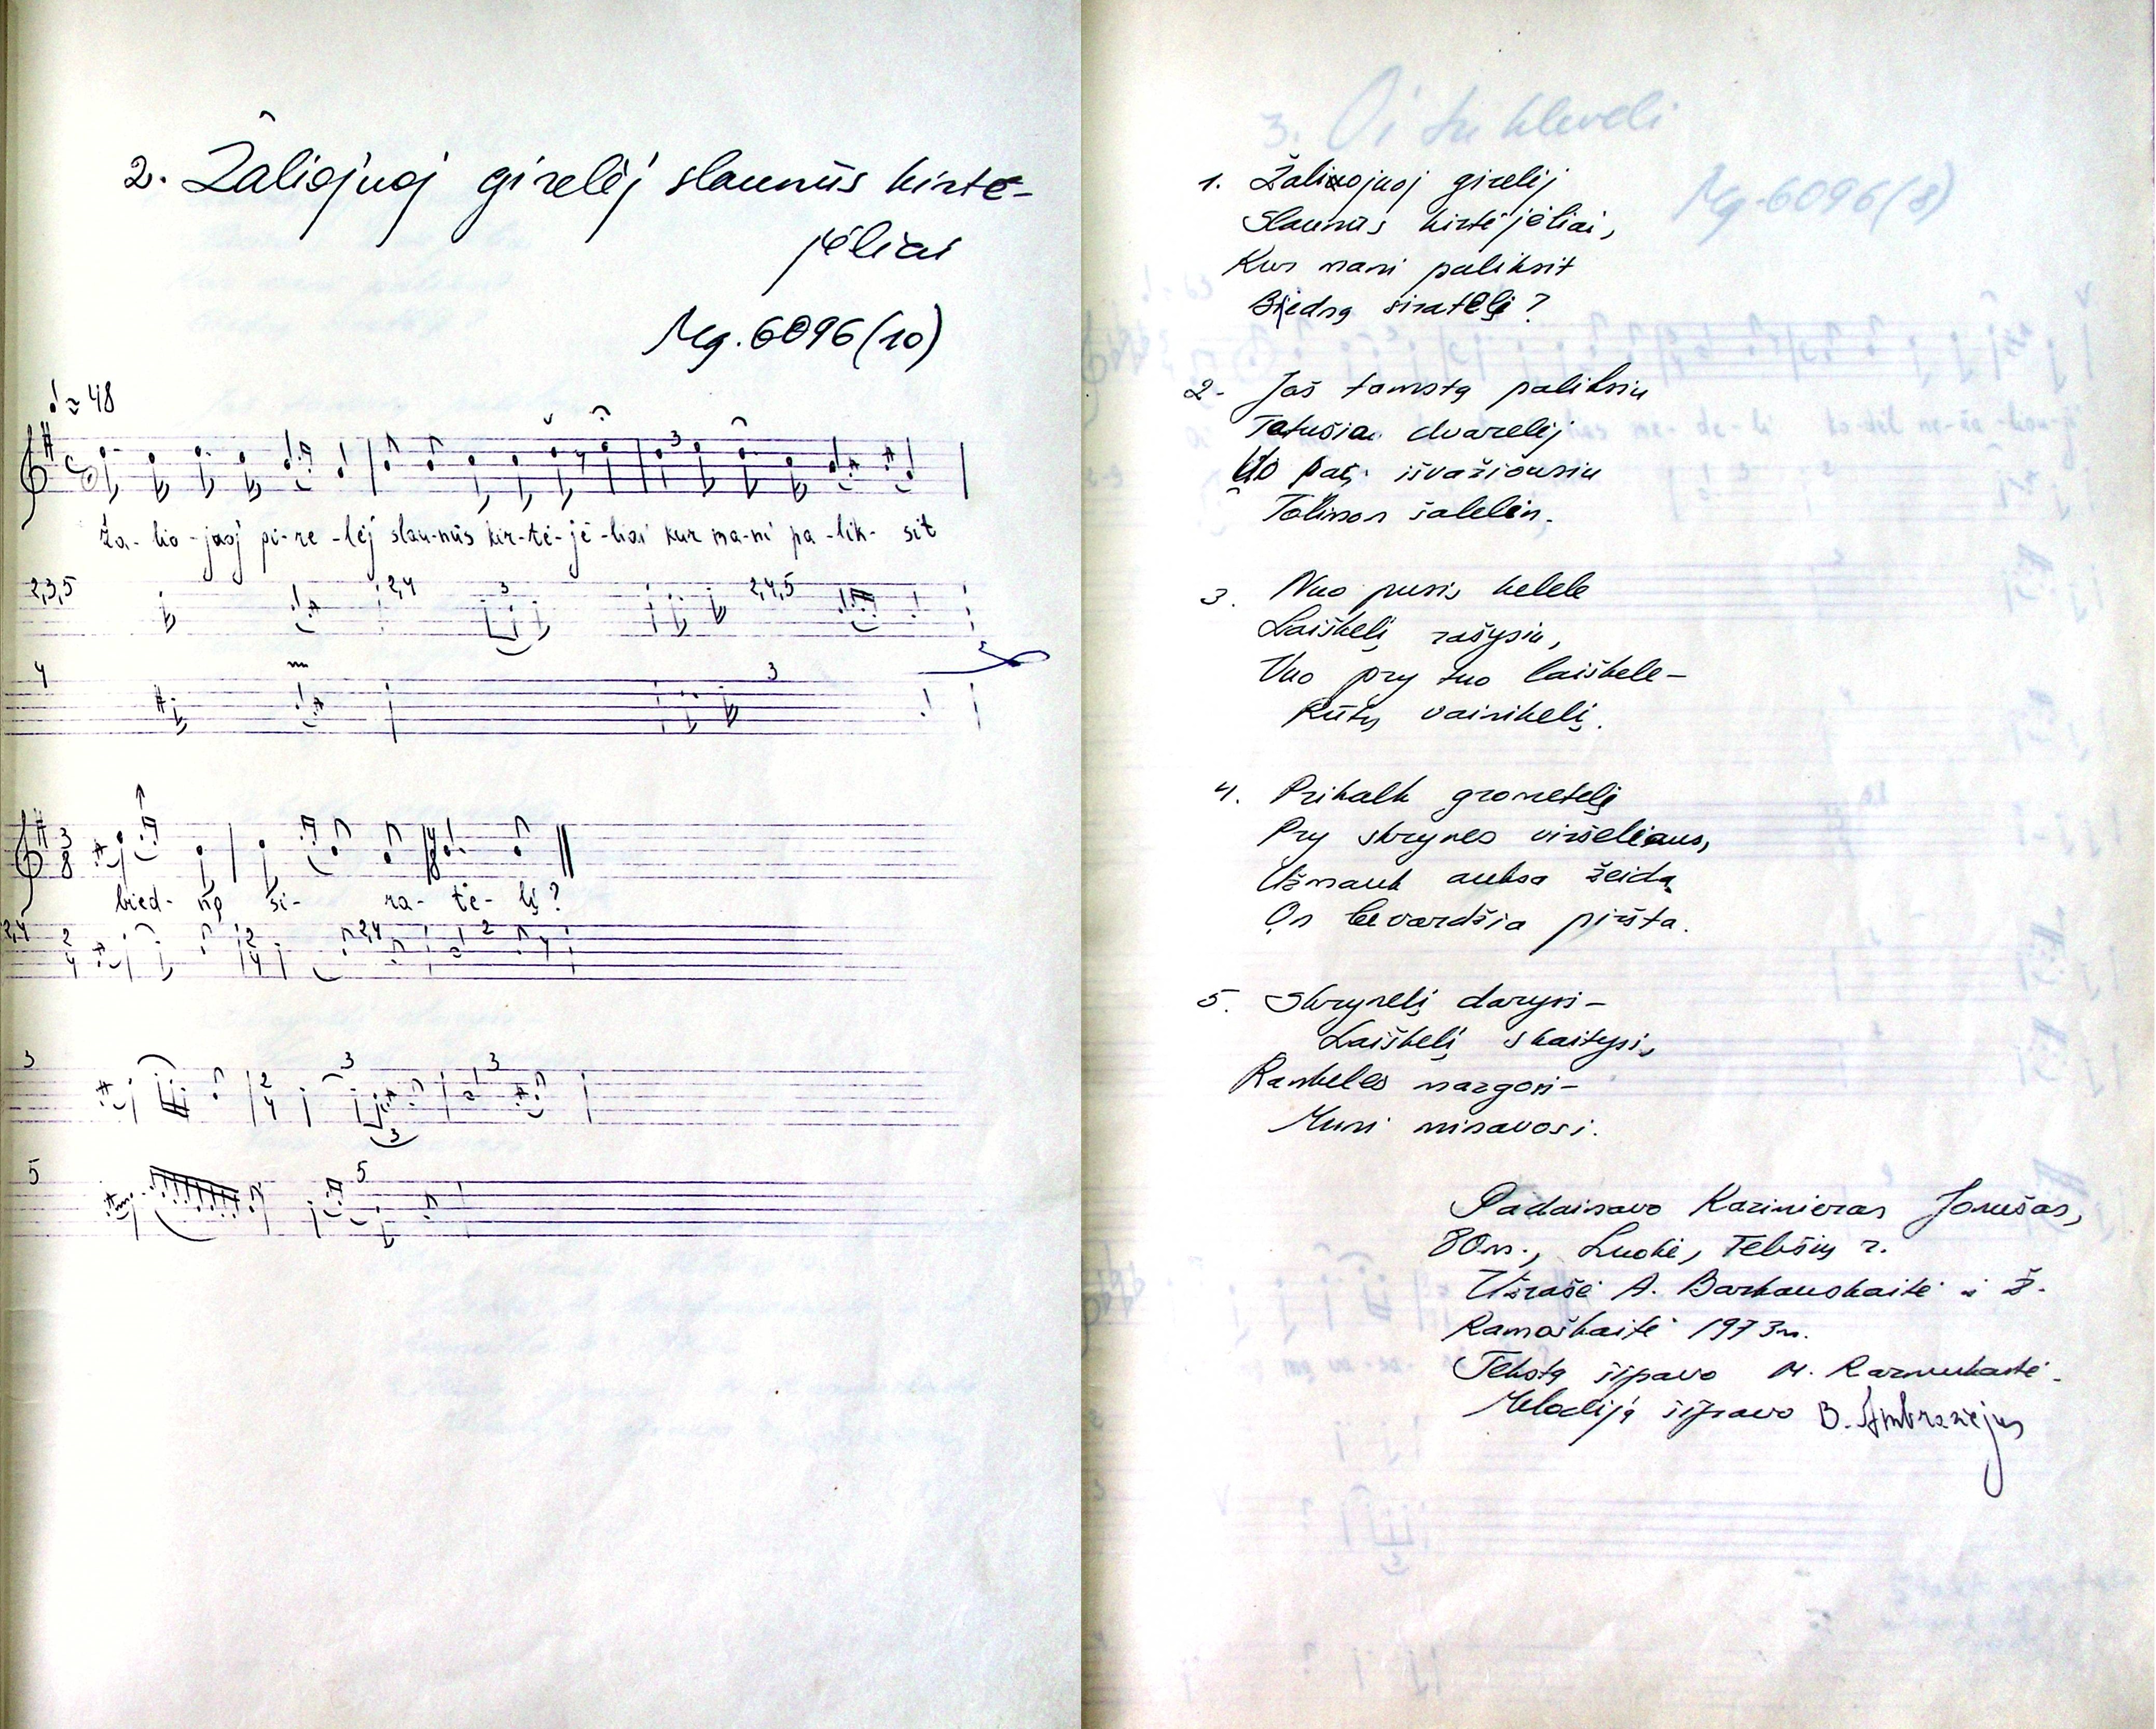 2. Žaliojuoj girelėj slaunūs kirtė-
jėliai
Mg. 6096(10)
≈ 48
Ža- lio -juoj gi-re -lėj slau-nūs kir-tė-jė -liai kur ma-ni pa -lik- sit
2,3,5 2,4 3 2,4,5
4 3
3
8
bied- ną si- ra- tė- lę?
2,4 2 4 2 4 2,4 2
3 2 4 3 3
3
5 5
1. Žaliuojuoj girelėj
Slaunūs kirtėjėliai,
Kur mani paliksit
Biedną siratėlę?
2. Jaš tamstą paliksiu
Tatušia dvarelėj
Uo patį išvažiousiu
Tolimon šalelėn.
3. Nuo pusis kelele
Laiškelį rašysiu,
Vuo pry tuo laiškele-
Rūtų vainikelį.
4. Prikalk grometelę
Pry skrynes viršeliaus,
Užmauk auksa žeidą
On bevardžia piršta.
5. Skrynelį darysi-
Laiškelį skaitysi,
Rankeles mazgosi-
Muni minavosi.
Padainavo Kazimieras Jonušas,
80m., Luokė, Telšių r.
Užrašė A. Barkauskaitė ir Ž.
Ramoškaitė 1973m.
Tekstą šifravo M. Razmukaitė.
Melodiją šifravo B. Ambraziejus
3. Oi tu kleveli
Mg. 6096(8)